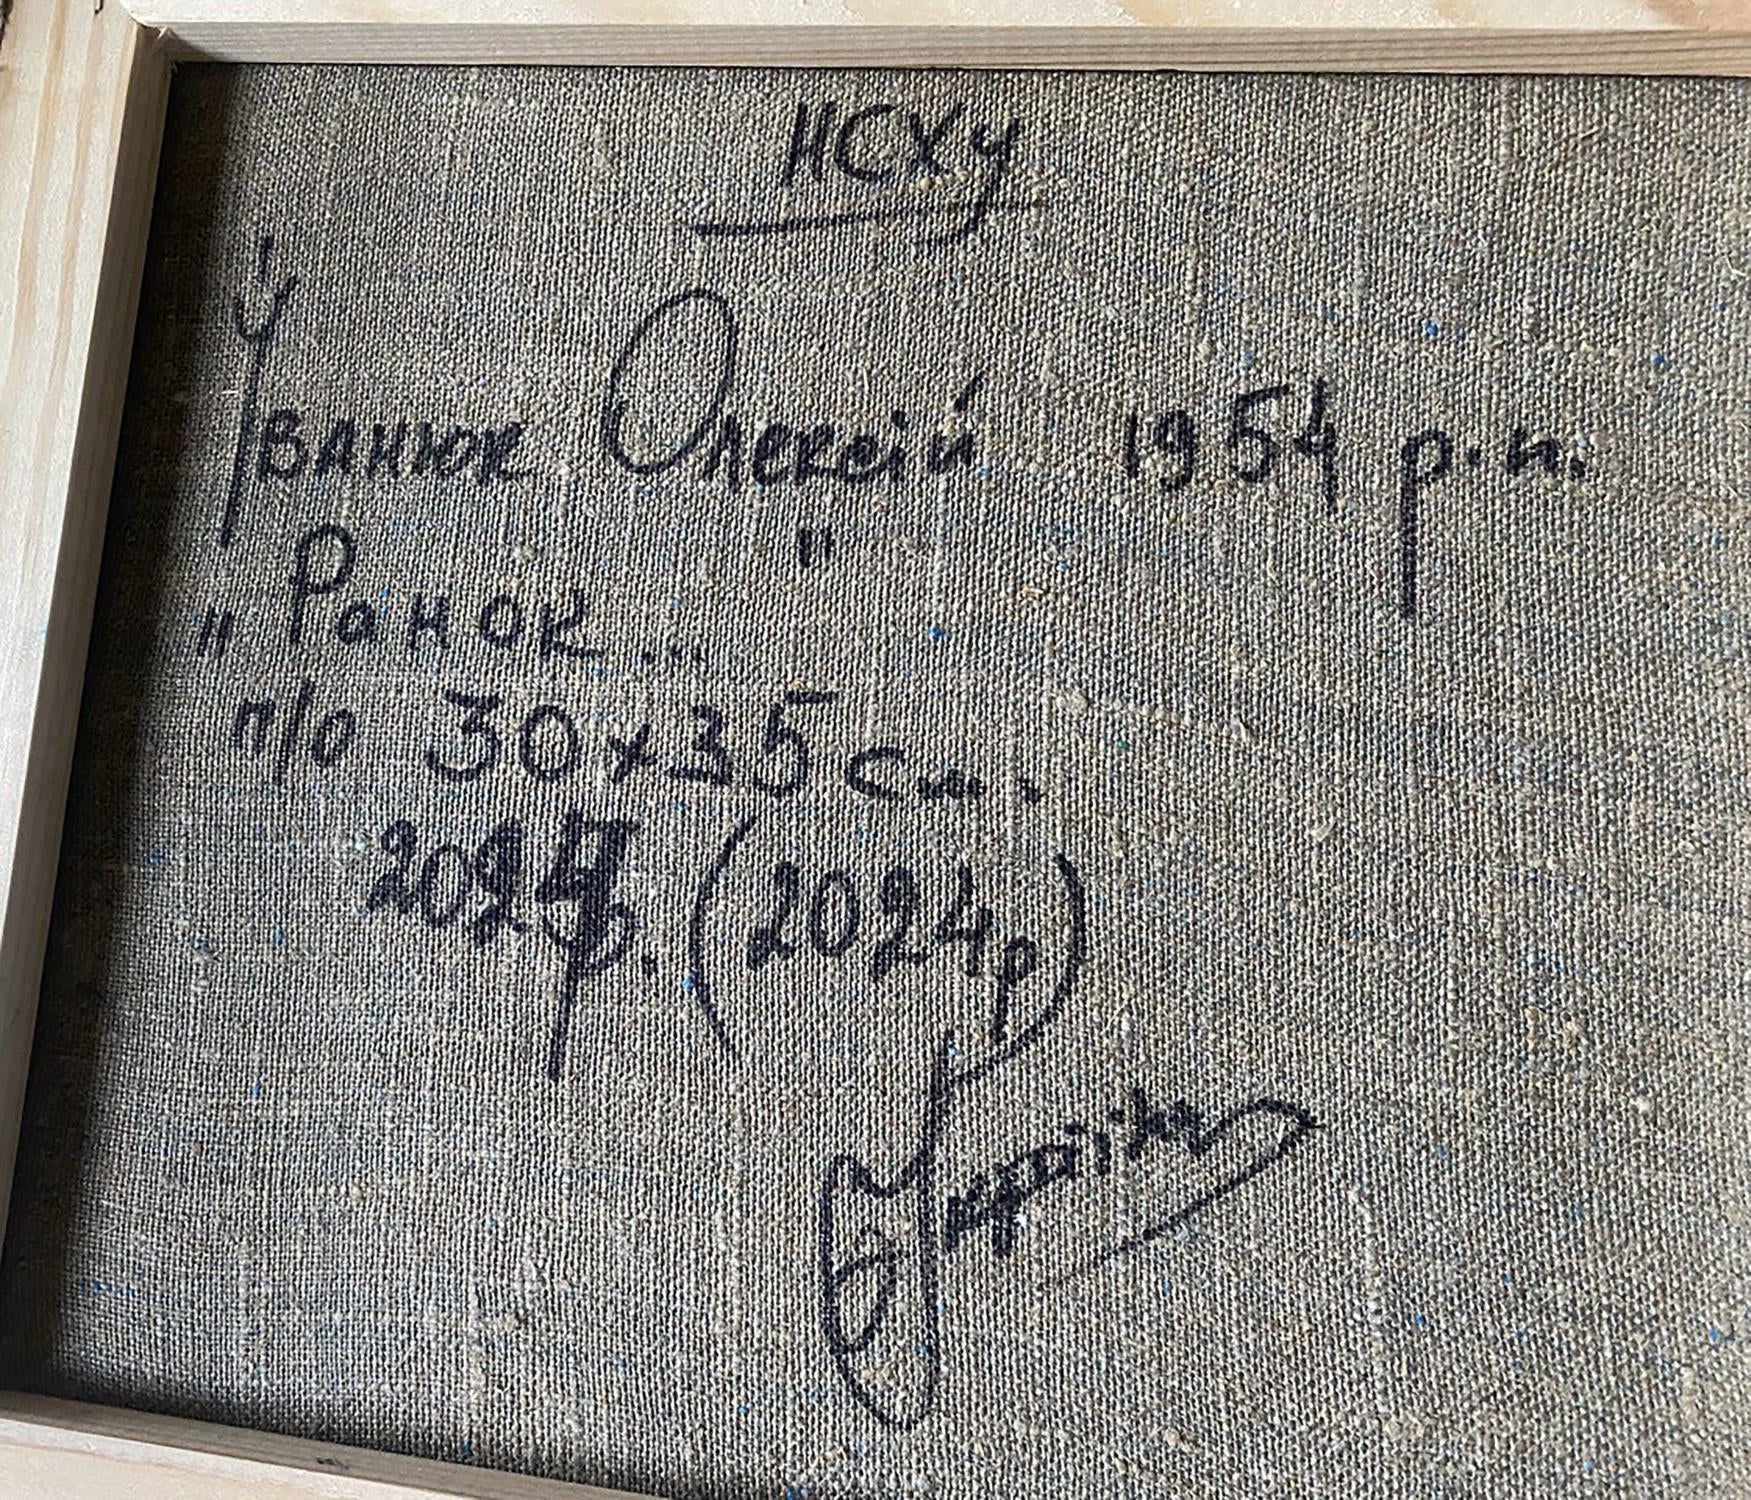 НСХУ
Іванюк Олексій 1954 р.н.
" Ранок... "
п/о 30х35 см.
2024р. (2024р)